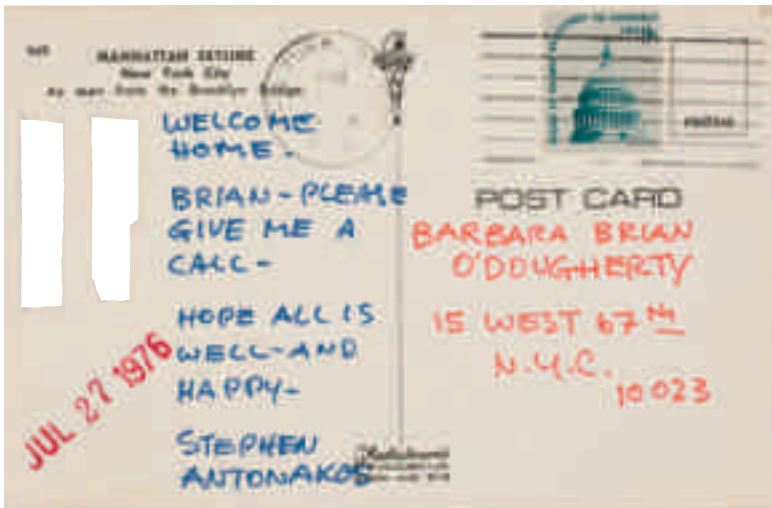 MANHATTAN SKYLINE
New York City
As seen from the Brooklyn Bridge
WELCOME
HOME -
BRIAN - PLEASE
GIVE ME A
CALL -
HOPE ALL IS
WELL - AND
HAPPY -
STEPHEN
ANTONAKOS
JUL 27 1976
POST CARD
BARBARA BRIAN
O'DOUGHERTY
15 WEST 67TH
N.Y.C.
10023